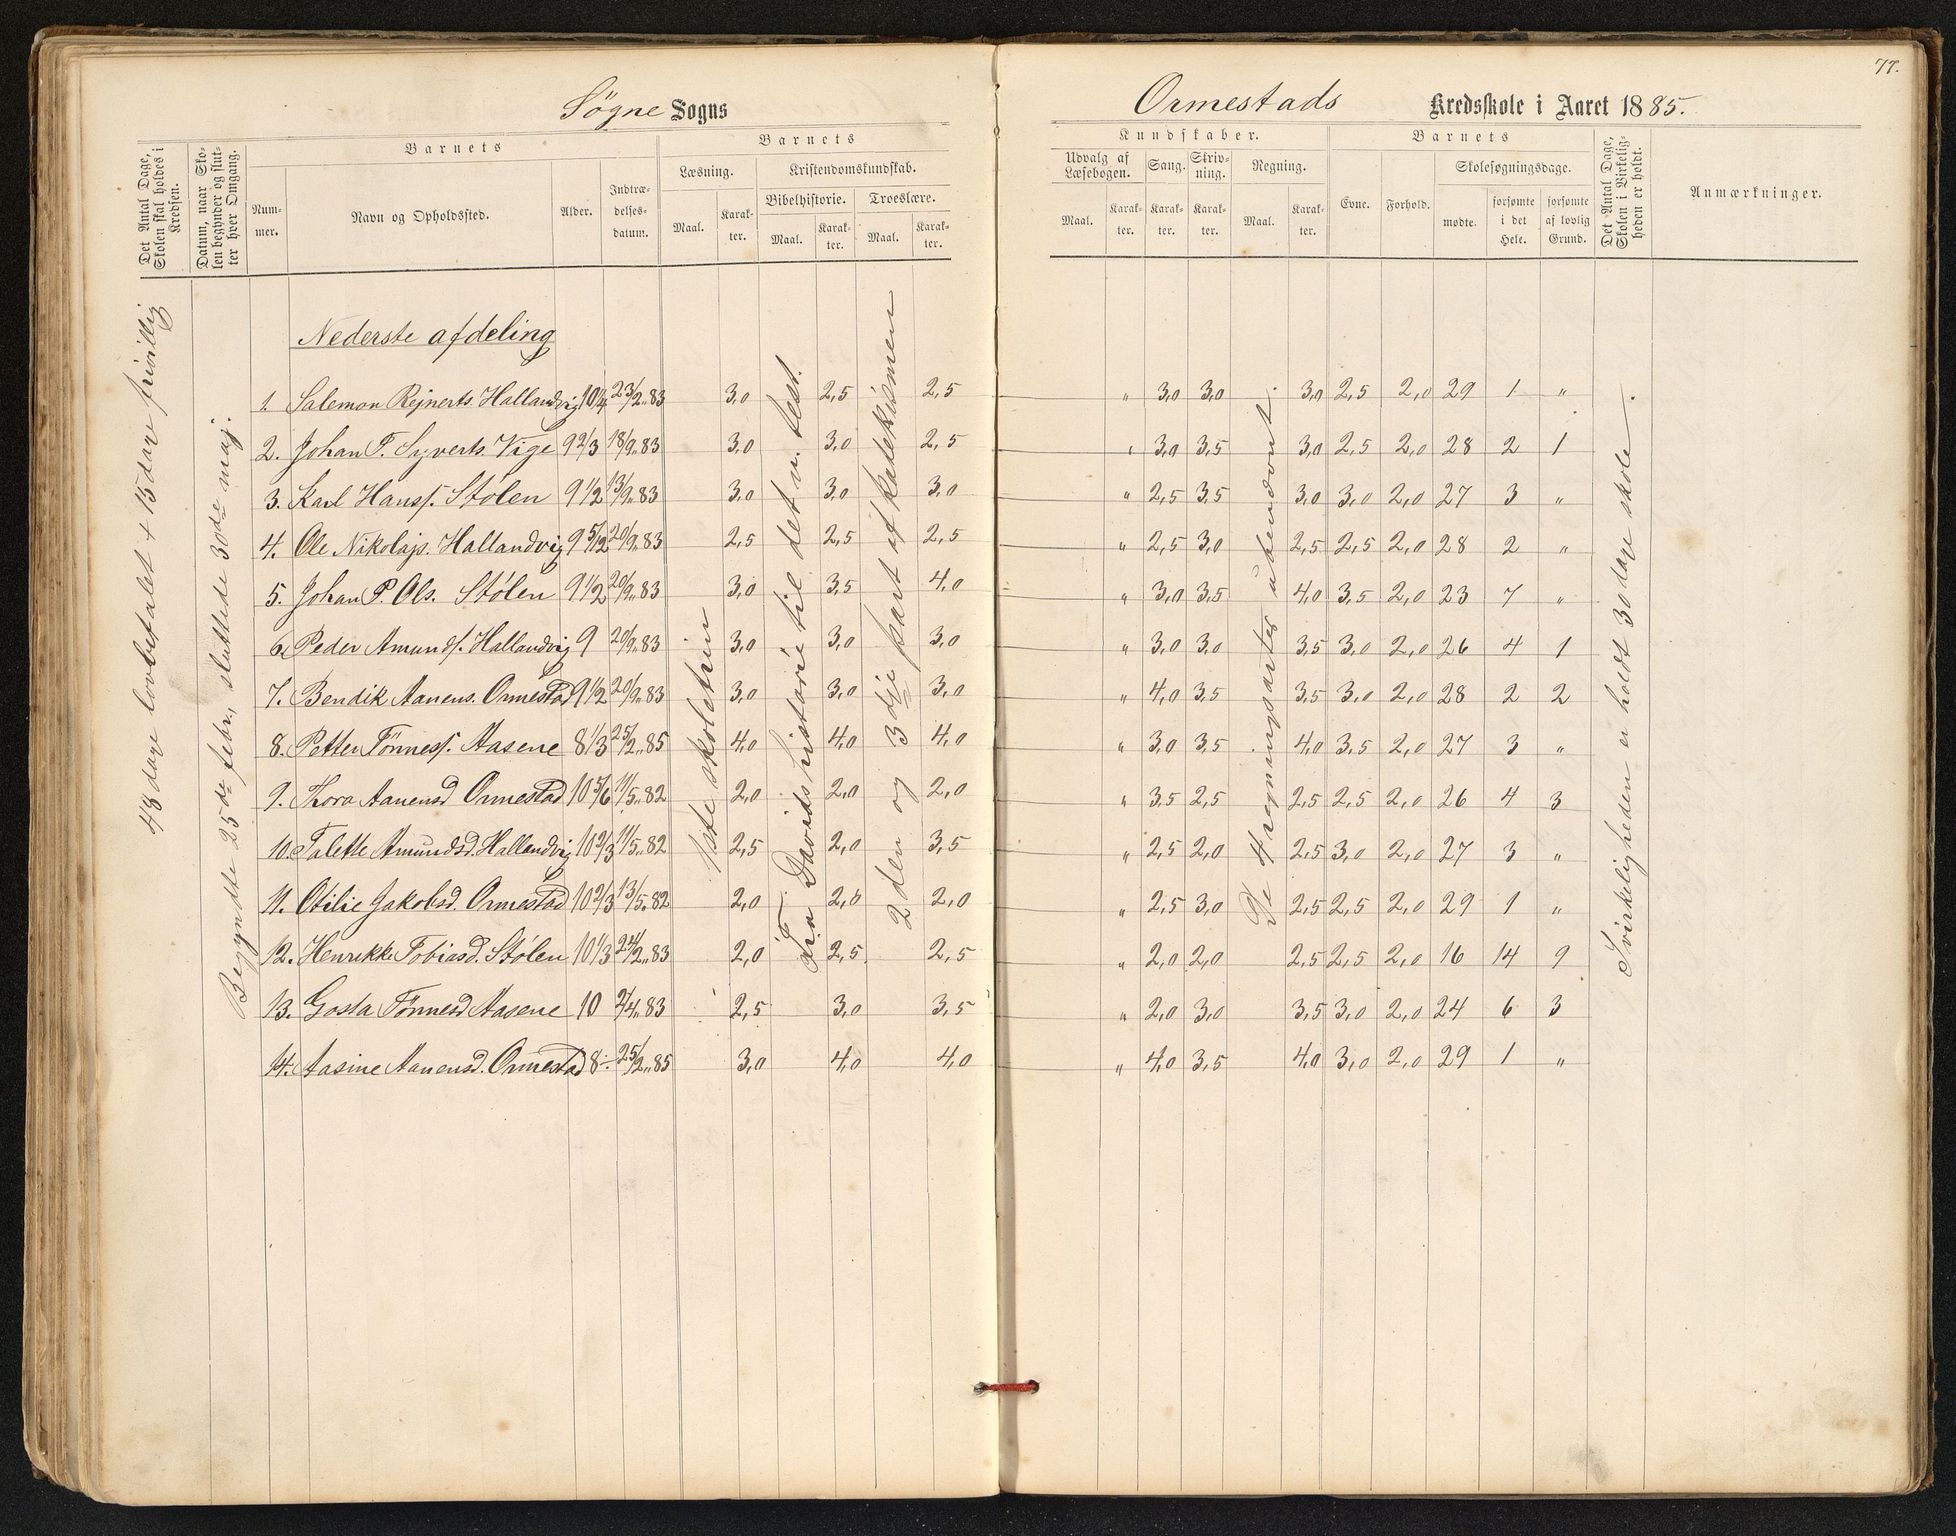 77.
Søgne Sogns
Ormestads Kredsskole i Aaret 1885.
Det Antal Dage, Skolen skal holdes i Kredsen.
Datum, naar Skolen begynder og slutter hver Omgang.
Barnets
Nummer.
Navn og Opholdssted.
Alder.
Indtrædelsesdatum.
Barnets
Læsning.
Maal.
Karakter.
Kristendomskundskab.
Bibelhistorie.
Maal.
Karakter.
Troeslære.
Maal.
Karakter.
Kundskaber.
Udvalg af Læsebogen.
Maal.
Karakter.
Sang.
Karakter.
Skrivning.
Karakter.
Regning.
Maal.
Karakter.
Barnets
Evne.
Forhold.
Skolesøgningsdage.
mødte.
forsømte i det Hele.
forsømte af lovlig Grund.
Det Antal Dage, Skolen i Virkeligheden er holdt.
Anmærkninger.
48 dage lovbetalet + 15 dage frivillig
Begyndte 25de febr., sluttede 30de maj.
Nederste afdeling
1ste skoletrin
Fra Davids historie til det n. test.
2den og 3dje part af katekismen
De 4 regningsarter ubenævnt.
I virkeligheden er holdt 30 dage skole.
1. Salemon Rejnerts. Hallandvig 10 1/4 23/2.83 3,0 2,5 2,5 " 3,0 3,0 3,0 2,5 2,0 29 1 "
2. Johan T. Syverts. Vige 9 2/3 18/9.83 3,0 3,0 2,5 " 3,0 3,5 3,0 2,5 2,0 28 2 1
3. Karl Hansf. Stølen 9 1/2 13/9.83 3,0 3,0 3,0 " 2,5 3,5 3,0 3,0 2,0 27 3 "
4. Ole Nikolajs. Hallandvig 9 5/12 20/9.83 2,5 2,5 2,5 " 2,5 3,0 2,5 2,5 2,0 28 2 "
5. Johan P. Ols. Stølen 9 1/2 20/9.83 3,0 3,5 4,0 " 3,0 3,5 4,0 3,5 2,0 23 7 "
6. Peder Amundf. Hallandvig 9 20/9.83 3,0 3,0 3,0 " 3,0 3,0 3,5 3,0 2,0 26 4 1
7. Bendik Aanens. Ormestad 9 1/2 20/9.83 3,0 3,0 3,0 " 4,0 3,5 3,5 3,0 2,0 28 2 2
8. Petter Tønnesf. Aasene 8 1/3 25/2.85 4,0 4,0 4,0 " 3,0 3,5 4,0 3,5 2,0 27 3 "
9. Thora Aanensd Ormestad 10 5/6 11/5.82 2,0 2,0 2,0 " 3,5 2,5 2,5 2,5 2,0 26 4 3
10. Talette Amundsd. Hallandvig 10 2/3 11/5.82 2,5 2,0 3,5 " 2,5 2,0 2,5 3,0 2,0 27 3 "
11. Otilie Jakobsd. Ormestad 10 2/3 13/5.82 2,0 2,0 2,0 " 2,5 3,0 2,5 2,5 2,0 29 1 "
12. Henrikke Tobiasd. Stølen 10 1/3 24/2.83 2,0 2,5 2,5 " 2,0 2,0 2,5 2,5 2,0 16 14 9
13. Gosta Tønnesd Aasene 10 2/4.83 2,5 3,0 3,5 " 2,0 3,0 3,5 3,0 2,0 24 6 3
14. Aasine Aanensd. Ormestad 8 25/2.85 3,0 4,0 4,0 " 4,0 3,5 4,0 3,0 2,0 29 1 "